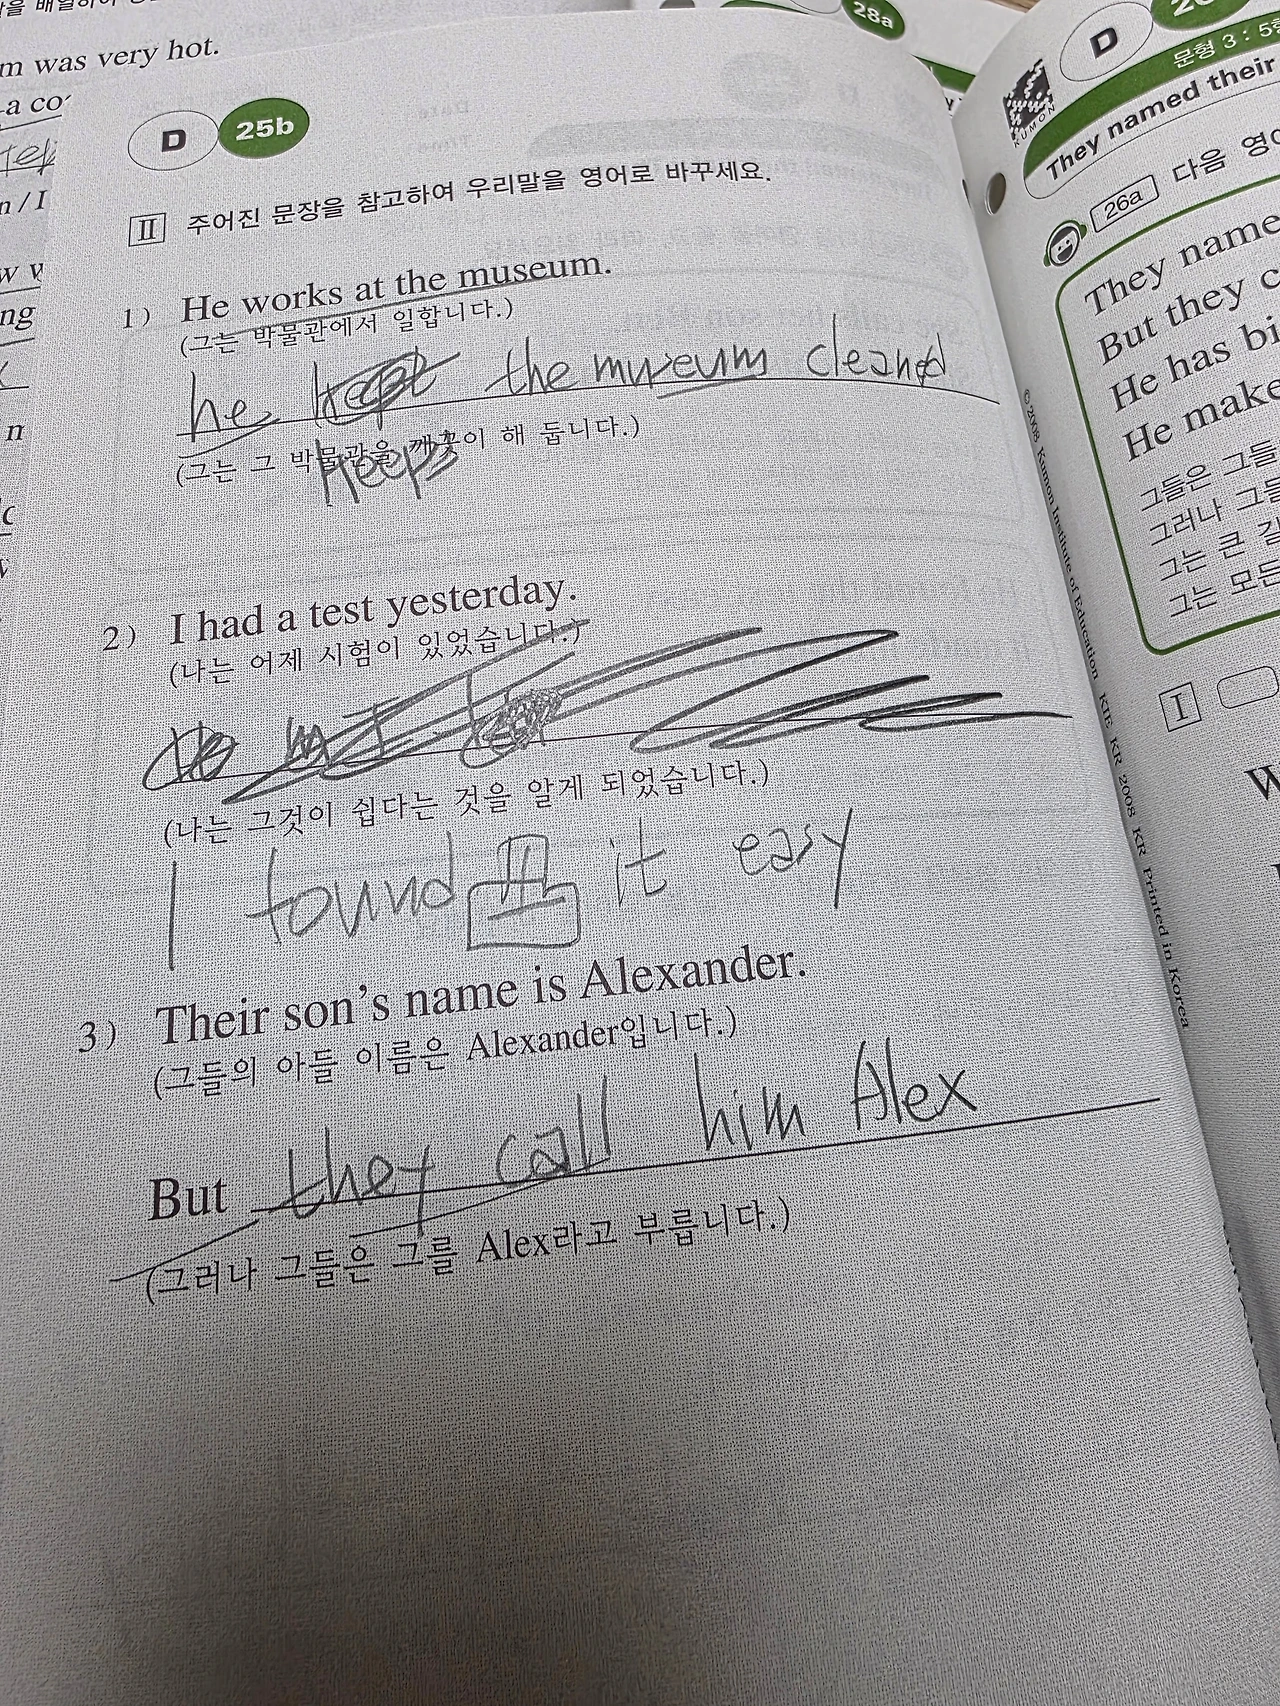 m was very hot.
28a
D
25b
II 주어진 문장을 참고하여 우리말을 영어로 바꾸세요.
1) He works at the museum.
(그는 박물관에서 일합니다.)
he the museum cleaned
keeps
(그는 그 박물관을 깨끗이 해 둡니다.)
2) I had a test yesterday.
(나는 어제 시험이 있었습니다.)
(나는 그것이 쉽다는 것을 알게 되었습니다.)
I found it easy
3) Their son's name is Alexander.
(그들의 아들 이름은 Alexander입니다.)
But they call him Alex
(그러나 그들은 그를 Alex라고 부릅니다.)
© 2008 Kumon Institute of Education KIE KR 2008 KR Printed in Korea
D
문형 3 : 5형
KUMON
They named their
26a 다음 영어
They name
But they c
He has bi
He make
그들은 그들
그러나 그들
그는 큰 길
그는 모든
I
W